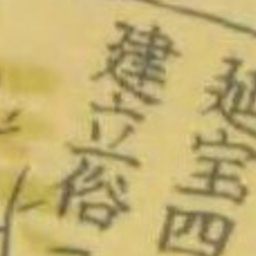 延宝四
建立俗